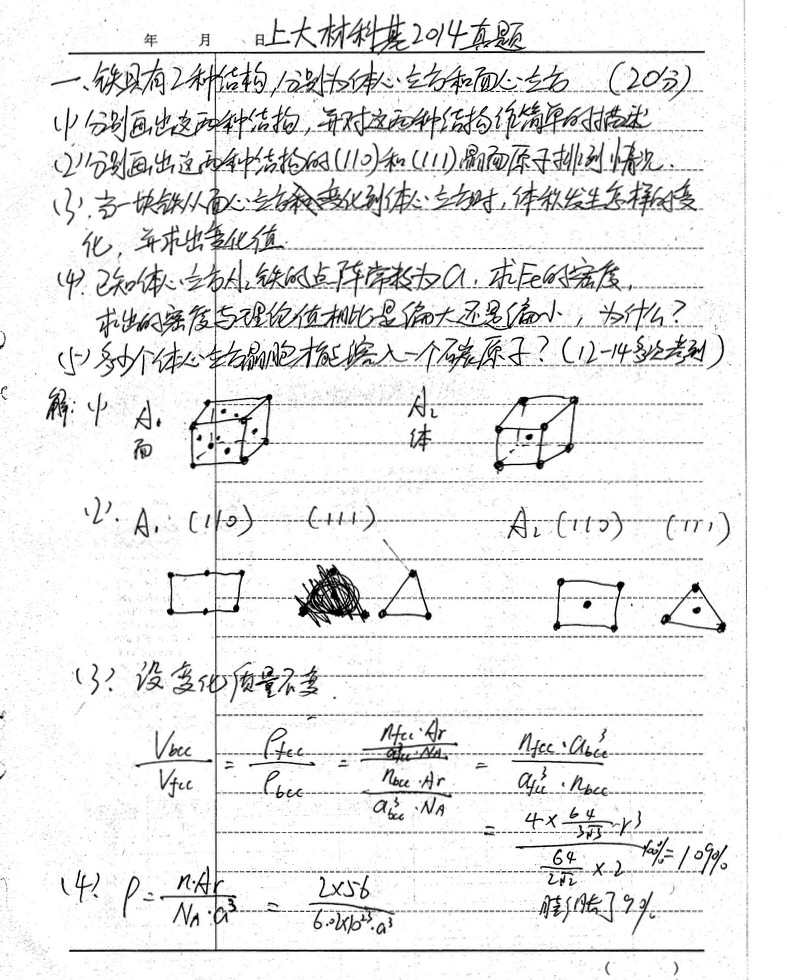 年 月 日 上大材科基2014真题
一、铁具有2种结构,分别为体心立方和面心立方 (20分)
(1) 分别画出这两种结构,并对这两种结构作简单的描述
(2) 分别画出这两种结构的(110)和(111)晶面原子排列情况.
(3). 当一块铁从面心立方变化到体心立方时,体积发生怎样的变
化,并求出变化值
(4). 已知体心立方A2铁的点阵常数为a,求Fe的密度,
求出的密度与理论值相比是偏大还是偏小,为什么?
(5) 多少个体心立方晶胞才能溶入一个碳原子?(12-14多次考到)
解: (1) A1 面 A2 体
(2). A1 (110) (111) A2 (110) (111)
(3). 设变化质量不变.
Vbcc/Vfcc = ρfcc/ρbcc = (nfcc·Ar/afcc³·NA)/(nbcc·Ar/abcc³·NA) = nfcc·abcc³/afcc³·nbcc
= (4×64/3√3·r³)/(64/2√2×2) ×100% = 109%
膨胀了9%
(4). ρ = n·Ar/NA·a³ = 2×56/6.02×10²³·a³
( )